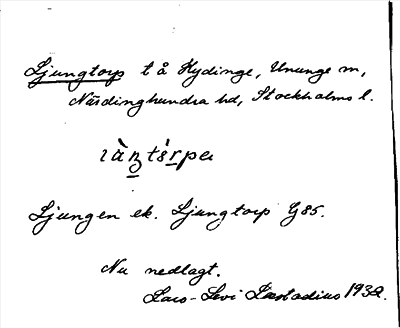 Ljungtorp t å Hydinge, Ununge sn,
Närdinghundra hd, Stockholms l.
Ljungen ek. Ljungtorp G85.
Nu nedlagt.
Lars-Levi Læstadius 1932.